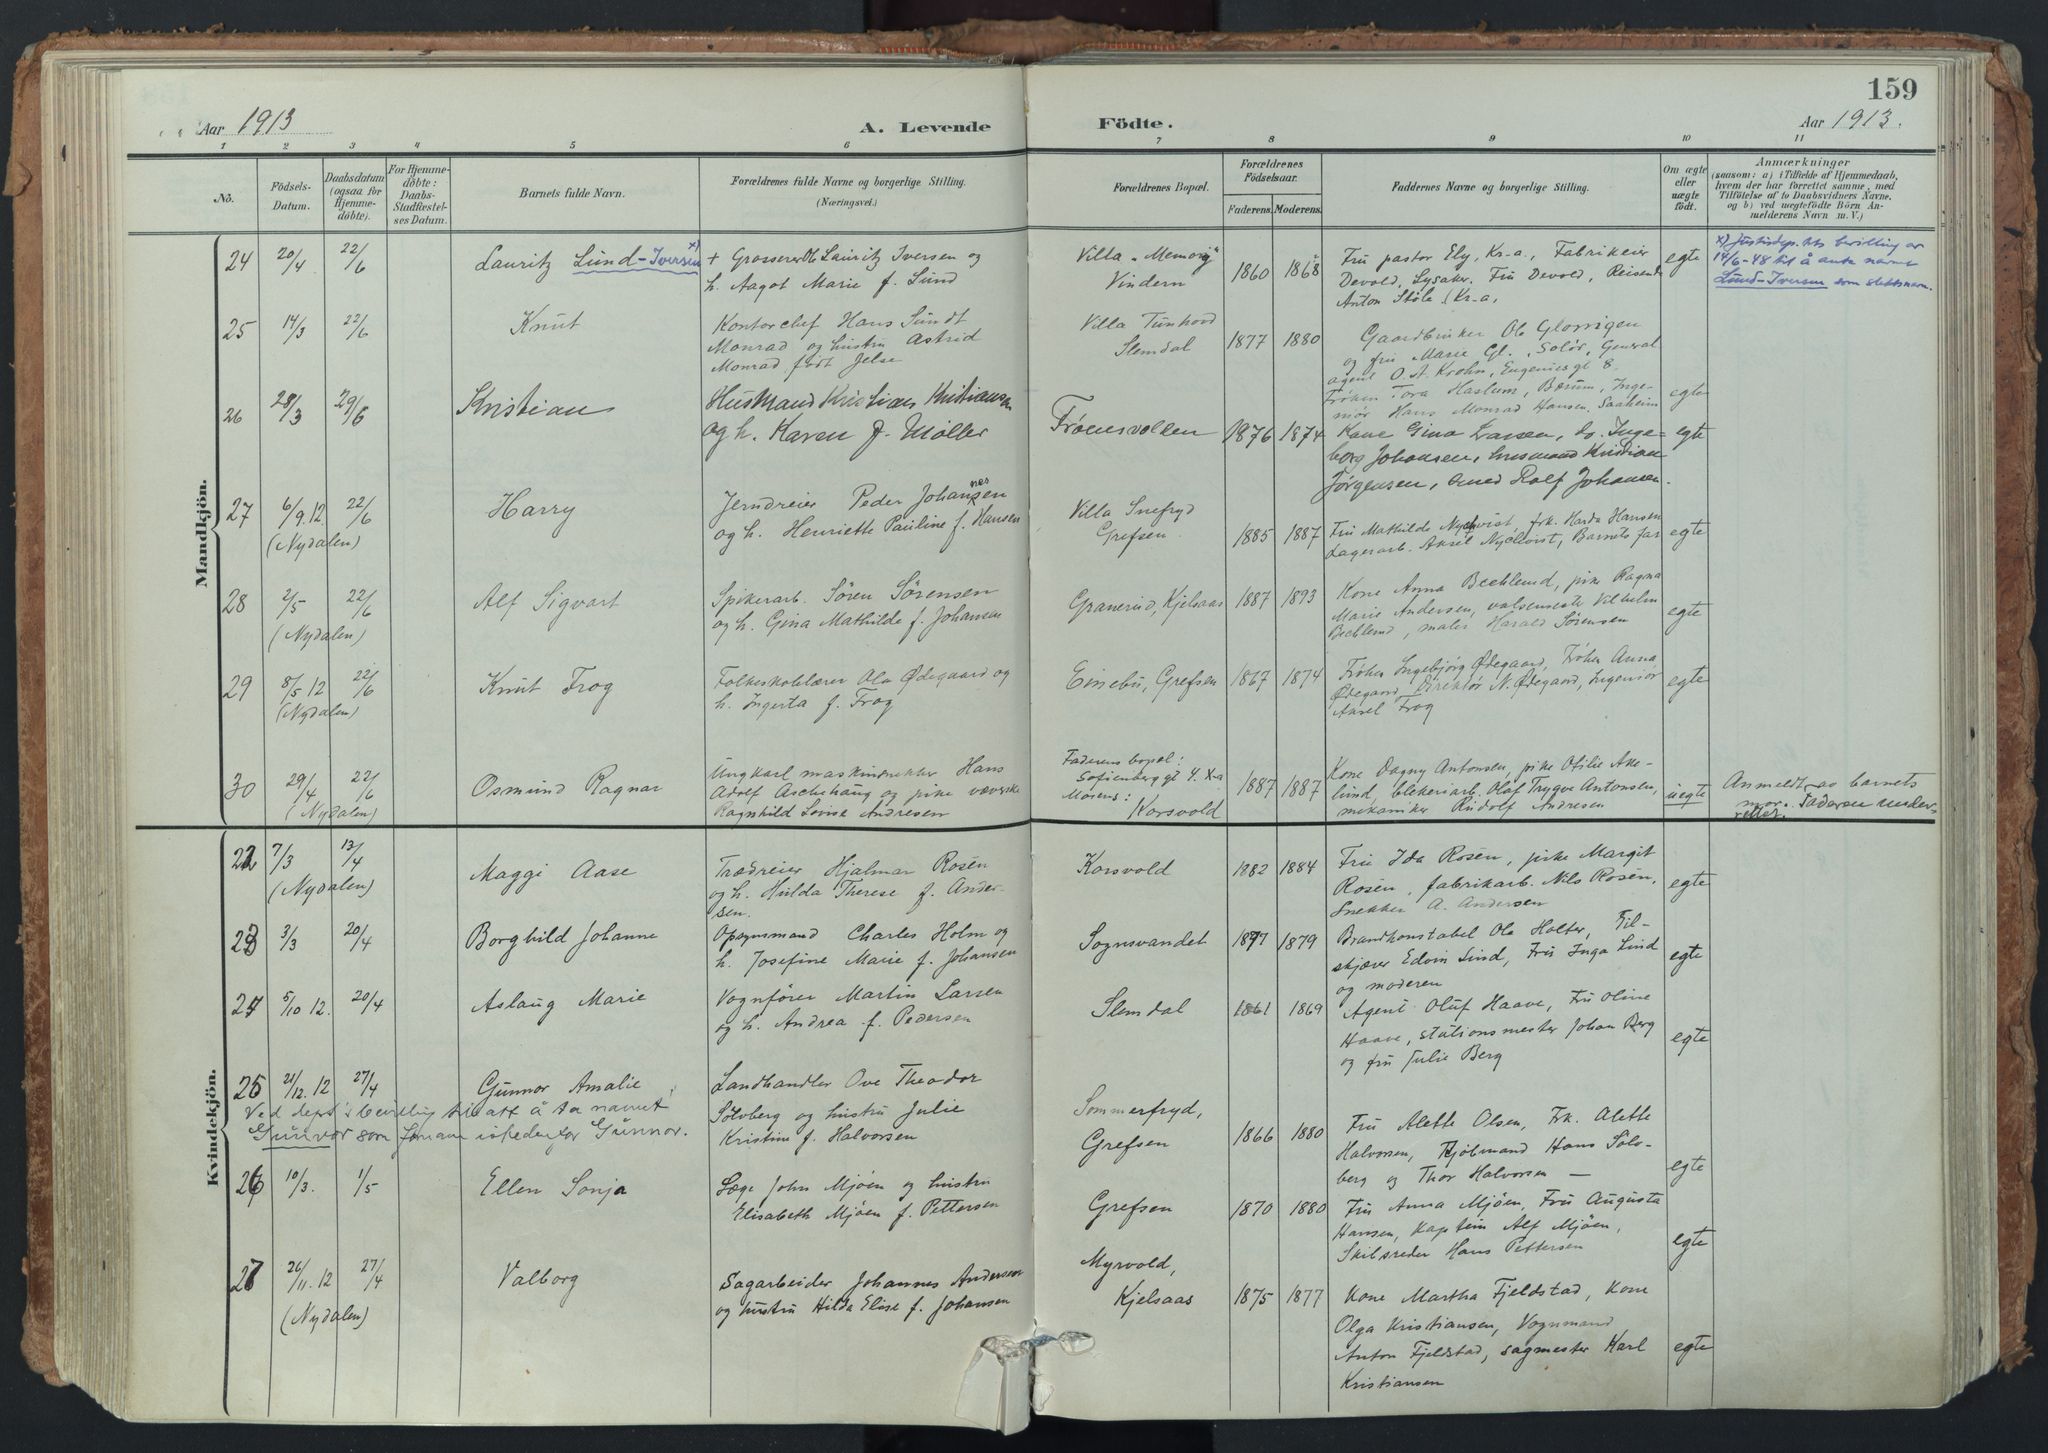 159
Aar 1913
A. Levende Födte.
Aar 1913.
1 2 3 4 5 6 7 8 9 10 11
No.
Födsels-Datum.
Daabsdatum (ogsaa for Hjemmedöbte).
For Hjemmedöbte: Daabs-Stadfæstelses Datum.
Barnets fulde Navn.
Forældrenes fulde Navne og borgerlige Stilling.
(Næringsvei.)
Forældrenes Bopæl.
Forældrenes Födselsaar.
Faderens. Moderens.
Faddernes Navne og borgerlige Stilling.
Om ægte eller uægte födt.
Anmærkninger
(saasom: a) i Tilfælde af Hjemmedaab,
hvem der har forrettet samme, med
Tilföielse af to Daabsvidners Navne,
og b) ved uægtefödte Börn An-
melderens Navn m. V.)
Mandkjön.
24 20/4 22/6 Lauritz Lund-Iversen x)
+ Grosserer Lauritz Iversen og
h. Aagot Marie f. Lund
Villa "Memory"
Vindern
1860 1868
Fru pastor Ely, Kr-a, Fabrikeier
Devold, Lysaker. Fru Devold, Reisende
Anton Støle, Kr-a,
egte
x) Justisdep.tets bevilling av
14/6-48 til å anta navnet
Lund-Iversen som slektsnavn.
25 14/3 22/6 Knut
Kontorchef Hans Sundt
Monrad og hustru Astrid
Monrad født Jelse
Villa Tunhovd
Slemdal
1877 1880
Gaardbruker Ole Glorvigen
og fru Marie Gl., Solør, General
agent O. A. Krohn, Eugeniesgt 8.
Frøken Tora Haslum, Bærum, Inge-
niør Hans Monrad Hansen, Saaheim
egte
26 28/3 29/6 Kristian
Husmand Kristian Kristiansen
og h. Karen f. Møller
Frøensvolden
1876 1874
Kone Gina Larsen, do. Inge-
borg Johansen, husmand Kristian
Jørgensen, Rolf Johansen.
egte
27 6/9.12 22/6 Harry
(Nydalen)
Jerndreier Peder Johannesen
og h. Henriette Pauline f. Hansen
Villa Snefryd
Grefsen
1885 1887
Fru Mathilde Nyqvist, frk. Harda Hansen
Lagerarb. Aksel Nyqvist, Barnets far
egte
28 2/5 22/6 Alf Sigvart
(Nydalen)
Spikerarb. Søren Sørensen
og h. Gina Mathilde f. Johansen
Granerud, Kjelsaas
1887 1893
Kone Anna Becklund, pike Ragna
Marie Andersen, valsemester Vilhelm
Becklund, maler Harald Sørensen
egte
29 8/5 12 22/6 Knut Frog
(Nydalen)
Folkeskolelærer Ola Ødegaard og
h. Ingerta f. Frog
Einebu, Grefsen
1867 1874
Frøken Ingebjørg Ødegaard, Frøken Anna
Ødegaard, Direktør N. Ødegaard, Ingeniør
Aksel Frog
egte
30 29/4 22/6 Osmund Ragnar
(Nydalen)
Ungkarl maskinsnekker Hans
Adolf Aschehaug og pike væverske
Ragnhild Lovise Andresen
Faderens bopæl:
Sofienberggt 4. X-a
Morens:
Korsvold
1887 1887
Kone Dagny Antonsen, pike Otilie Ake-
lund, blekeriarb. Olaf Trygve Antonsen,
mekaniker Rudolf Andresen
uegte
Anmeldt av barnets
mor. Faderen under-
rettet.
Kvindekjön.
22 7/3 13/4 Maggi Aase
(Nydalen)
Trædreier Hjalmar Rosén
og h. Hulda Therese f. Ander-
sen.
Korsvold
1882 1884
Fru Ida Rosén, pike Margit
Rosén, fabrikarb. Nils Rosén,
Snekker A. Andersen
egte
23 3/3 20/4 Borghild Johanne
Opsynsmand Charles Holm og
h. Josefine Marie f. Johansen
Sognsvandet
1877 1879
Brandkonstabel Ole Holter, Til-
skjærer Edvin Lind, Fru Inga Lind
og moderen
egte
24 5/10 12. 20/4 Aslaug Marie
Vognfører Martin Larsen
og h. Andrea f. Pedersen
Slemdal
1861 1869
Agent Oluf Haave, Fru Oline
Haave, stationsmester Johan Berg
og fru Julie Berg
egte
25 21/12.12 27/4 Gunnor Amalie
Ved dept's bevilling til att å ta navnet
Gunvor som fornavn istedenfor Gunnor.
Landhandler Ove Theodor
Sölvberg og hustru Julie
Kristine f. Halvorsen
Sommerfryd,
Grefsen
1866 1880
Fru Alette Olsen, Frk. Alette
Halvorsen, Kjøbmand Hans Sölv-
berg og Thor Halvorsen —
egte
26 10/3. 1/5 Ellen Sonja
Læge John Mjøen og hustru
Elisabeth Mjøen f. Pettersen
Grefsen
1870 1880
Fru Anna Mjøen, Fru Augusta
Hansen, Kaptein Alf Mjøen,
Skibsreder Hans Pettersen
egte
27 26/11.12 27/4 Valborg
(Nydalen)
Sagarbeider Johannes Andersen
og hustru Hilda Elise f. Johansen
Myrvold,
Kjelsaas
1875 1877
Kone Martha Fjeldstad, Kone
Olga Kristiansen, Vognmand
Anton Fjeldstad, sagmester Karl
Kristiansen
egte